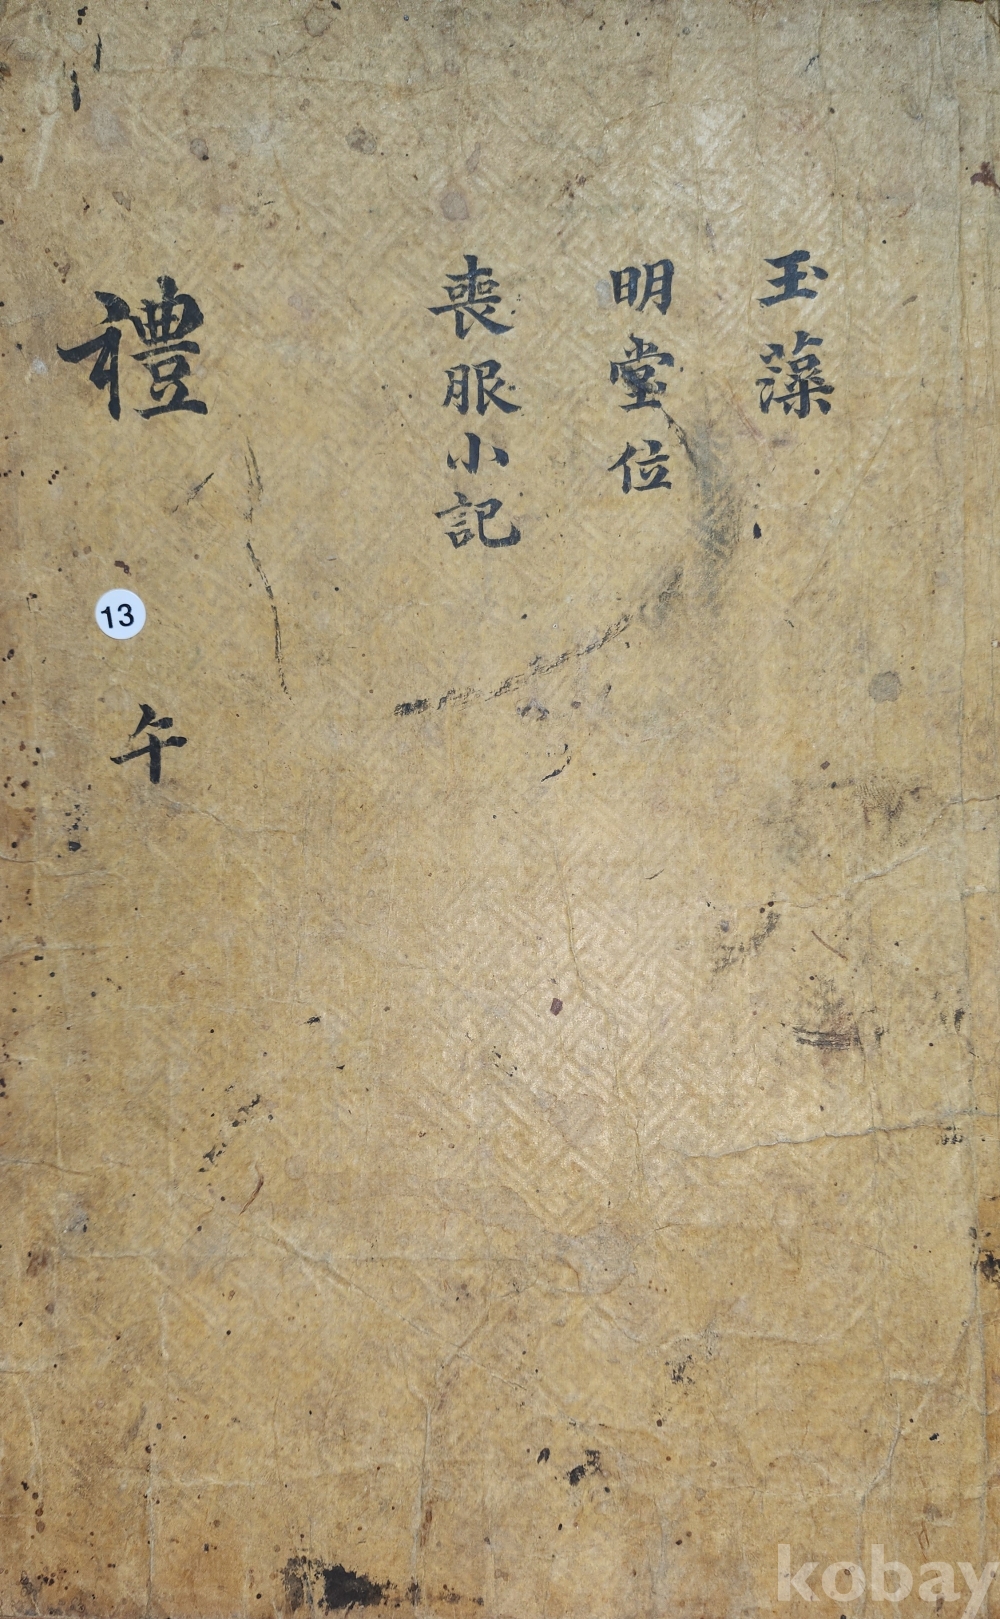 玉藻
明堂位
喪服小記
禮
13
午
kobay